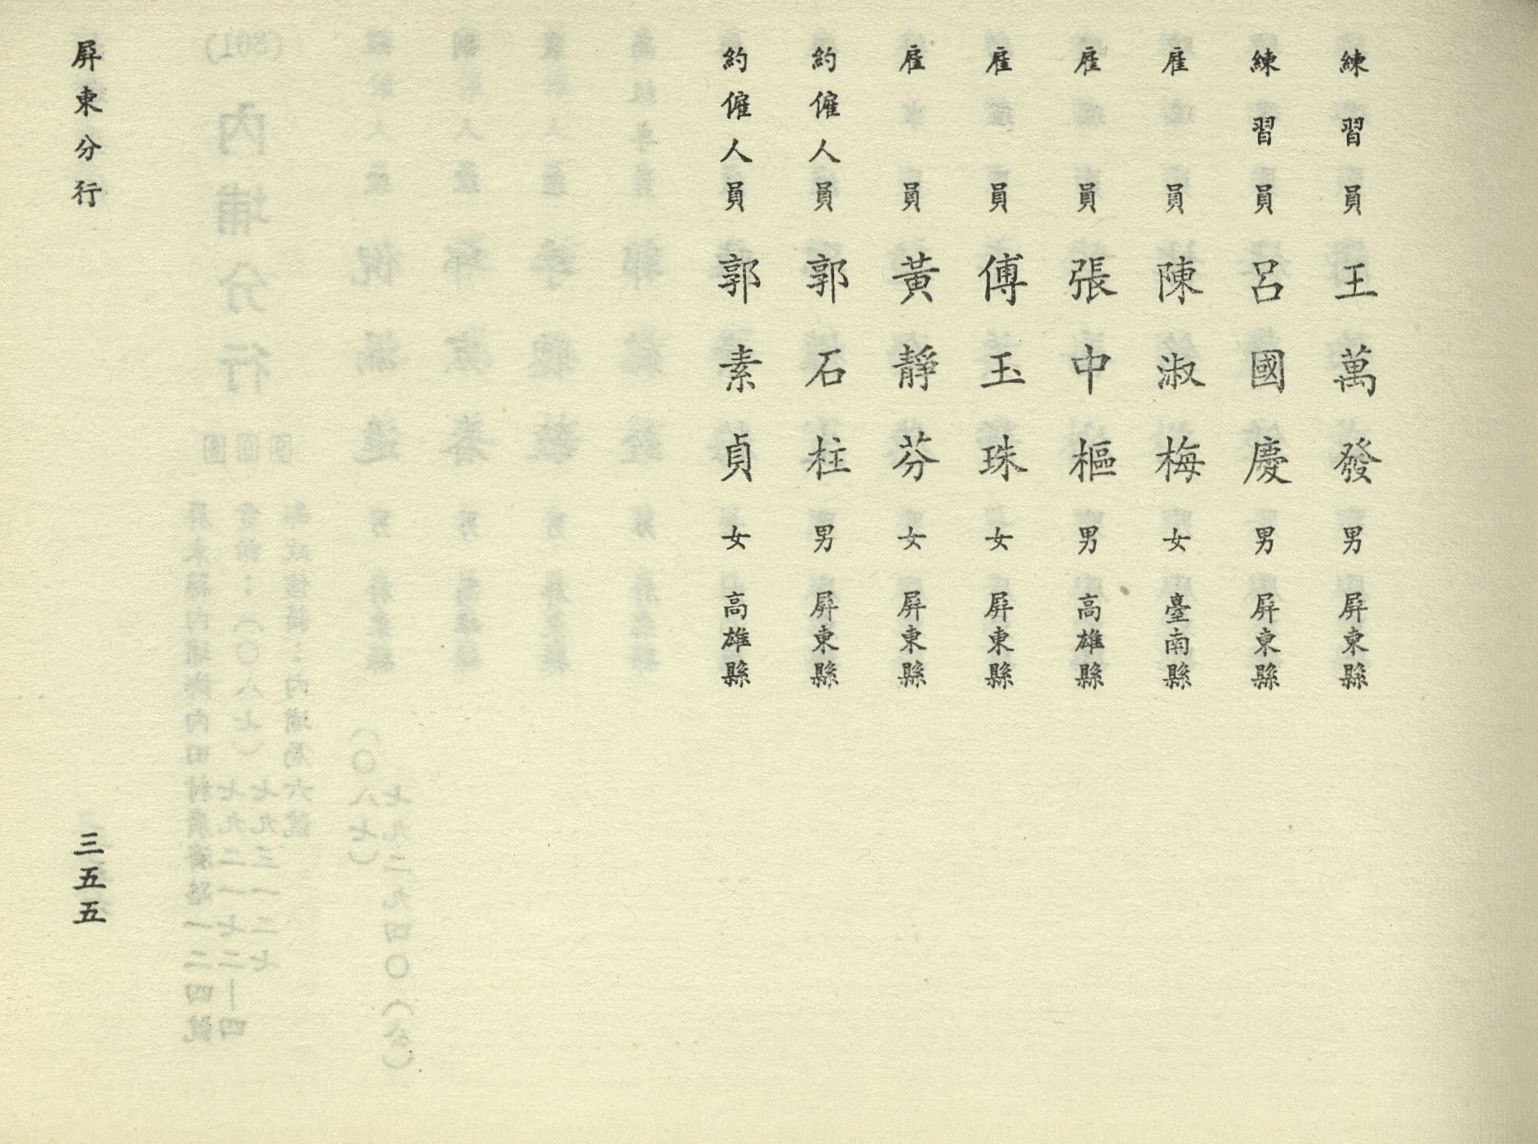 練習員 王萬發 男 屏東縣
練習員 呂國慶 男 屏東縣
雇員 陳淑梅 女 臺南縣
雇員 張中樞 男 高雄縣
雇員 傅玉珠 女 屏東縣
雇員 黃靜芬 女 屏東縣
約僱人員 郭石柱 男 屏東縣
約僱人員 郭素貞 女 高雄縣
屏東分行 三五五